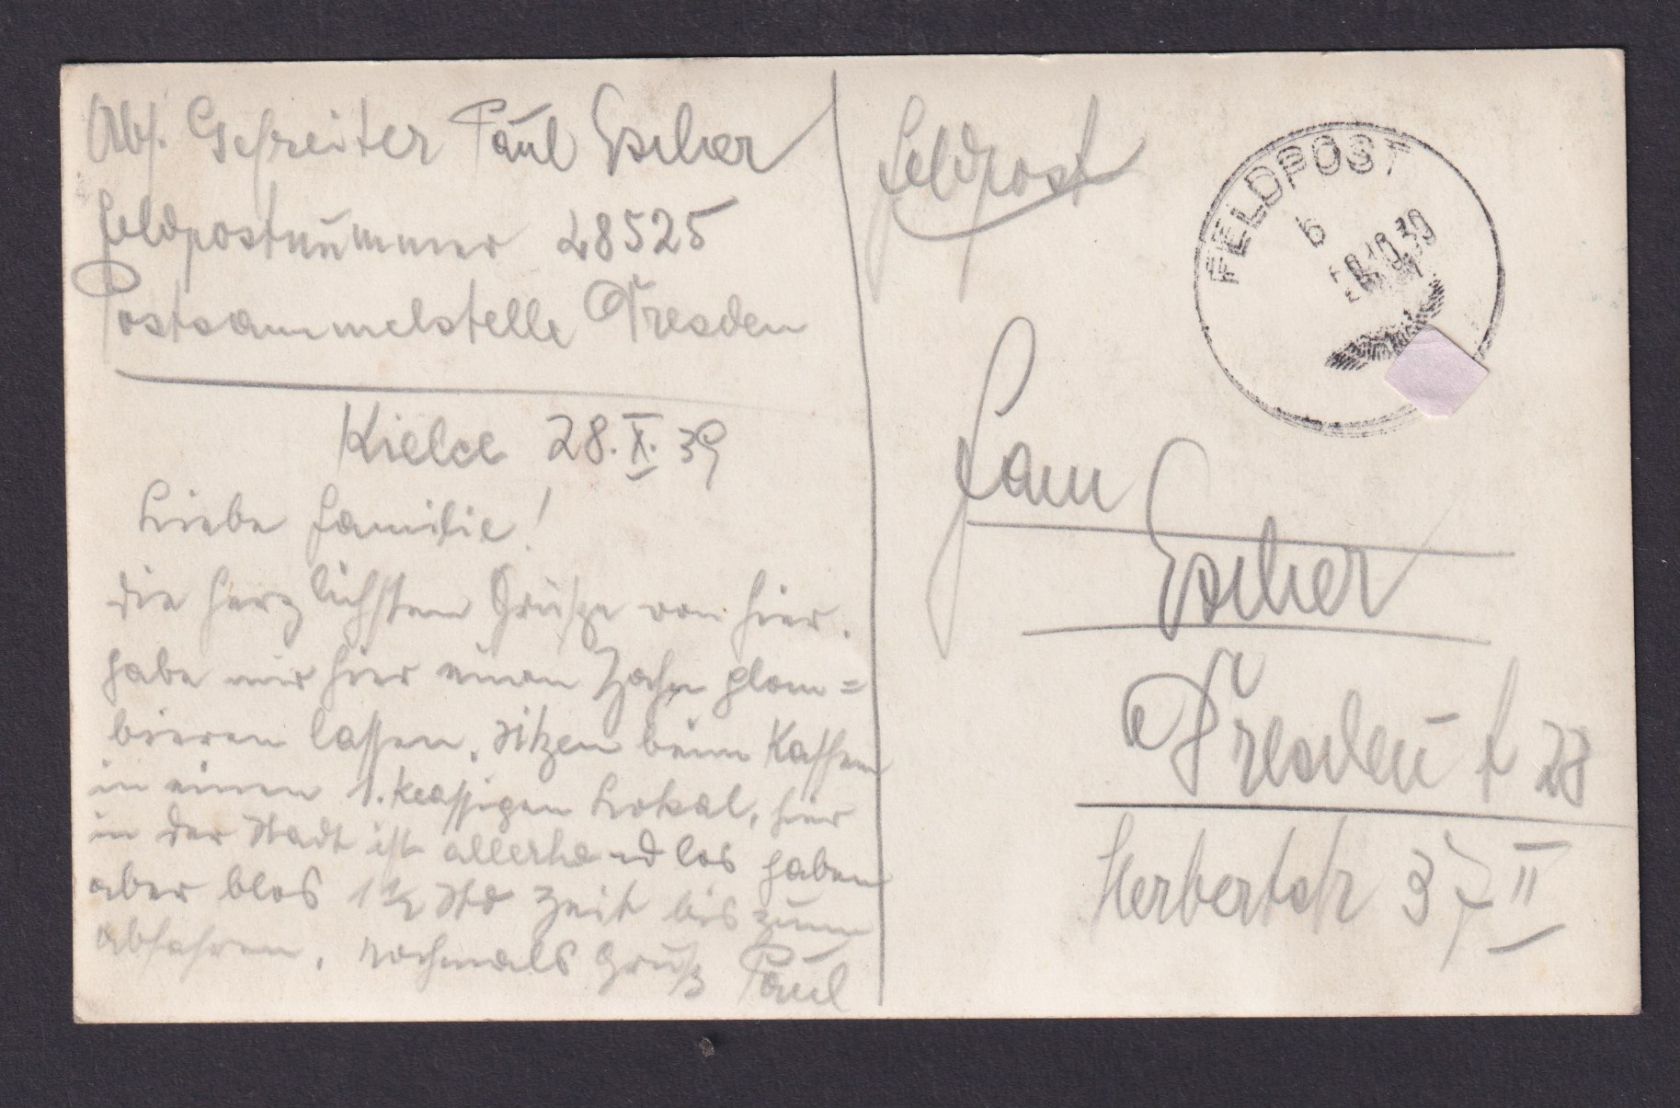 Abs. Gefreiter Paul Escher
Feldpostnummer 28525
Postsammelstelle Dresden
Kielce 28. X. 39
Liebe Familie!
die herzlichsten Grüße von hier.
habe mir hier einen Zahn plom=
bieren lassen. sitzen beim Kaffee
in einem 1. klassigen Lokal, hier
in der Stadt ist allerhand los haben
aber blos 1 1/2 Std Zeit bis zum
abfahren. nochmals Gruß Paul
Feldpost
FELDPOST
b
.10.39
Fam
Escher
Dresden A 28
Herbertstr 37 II